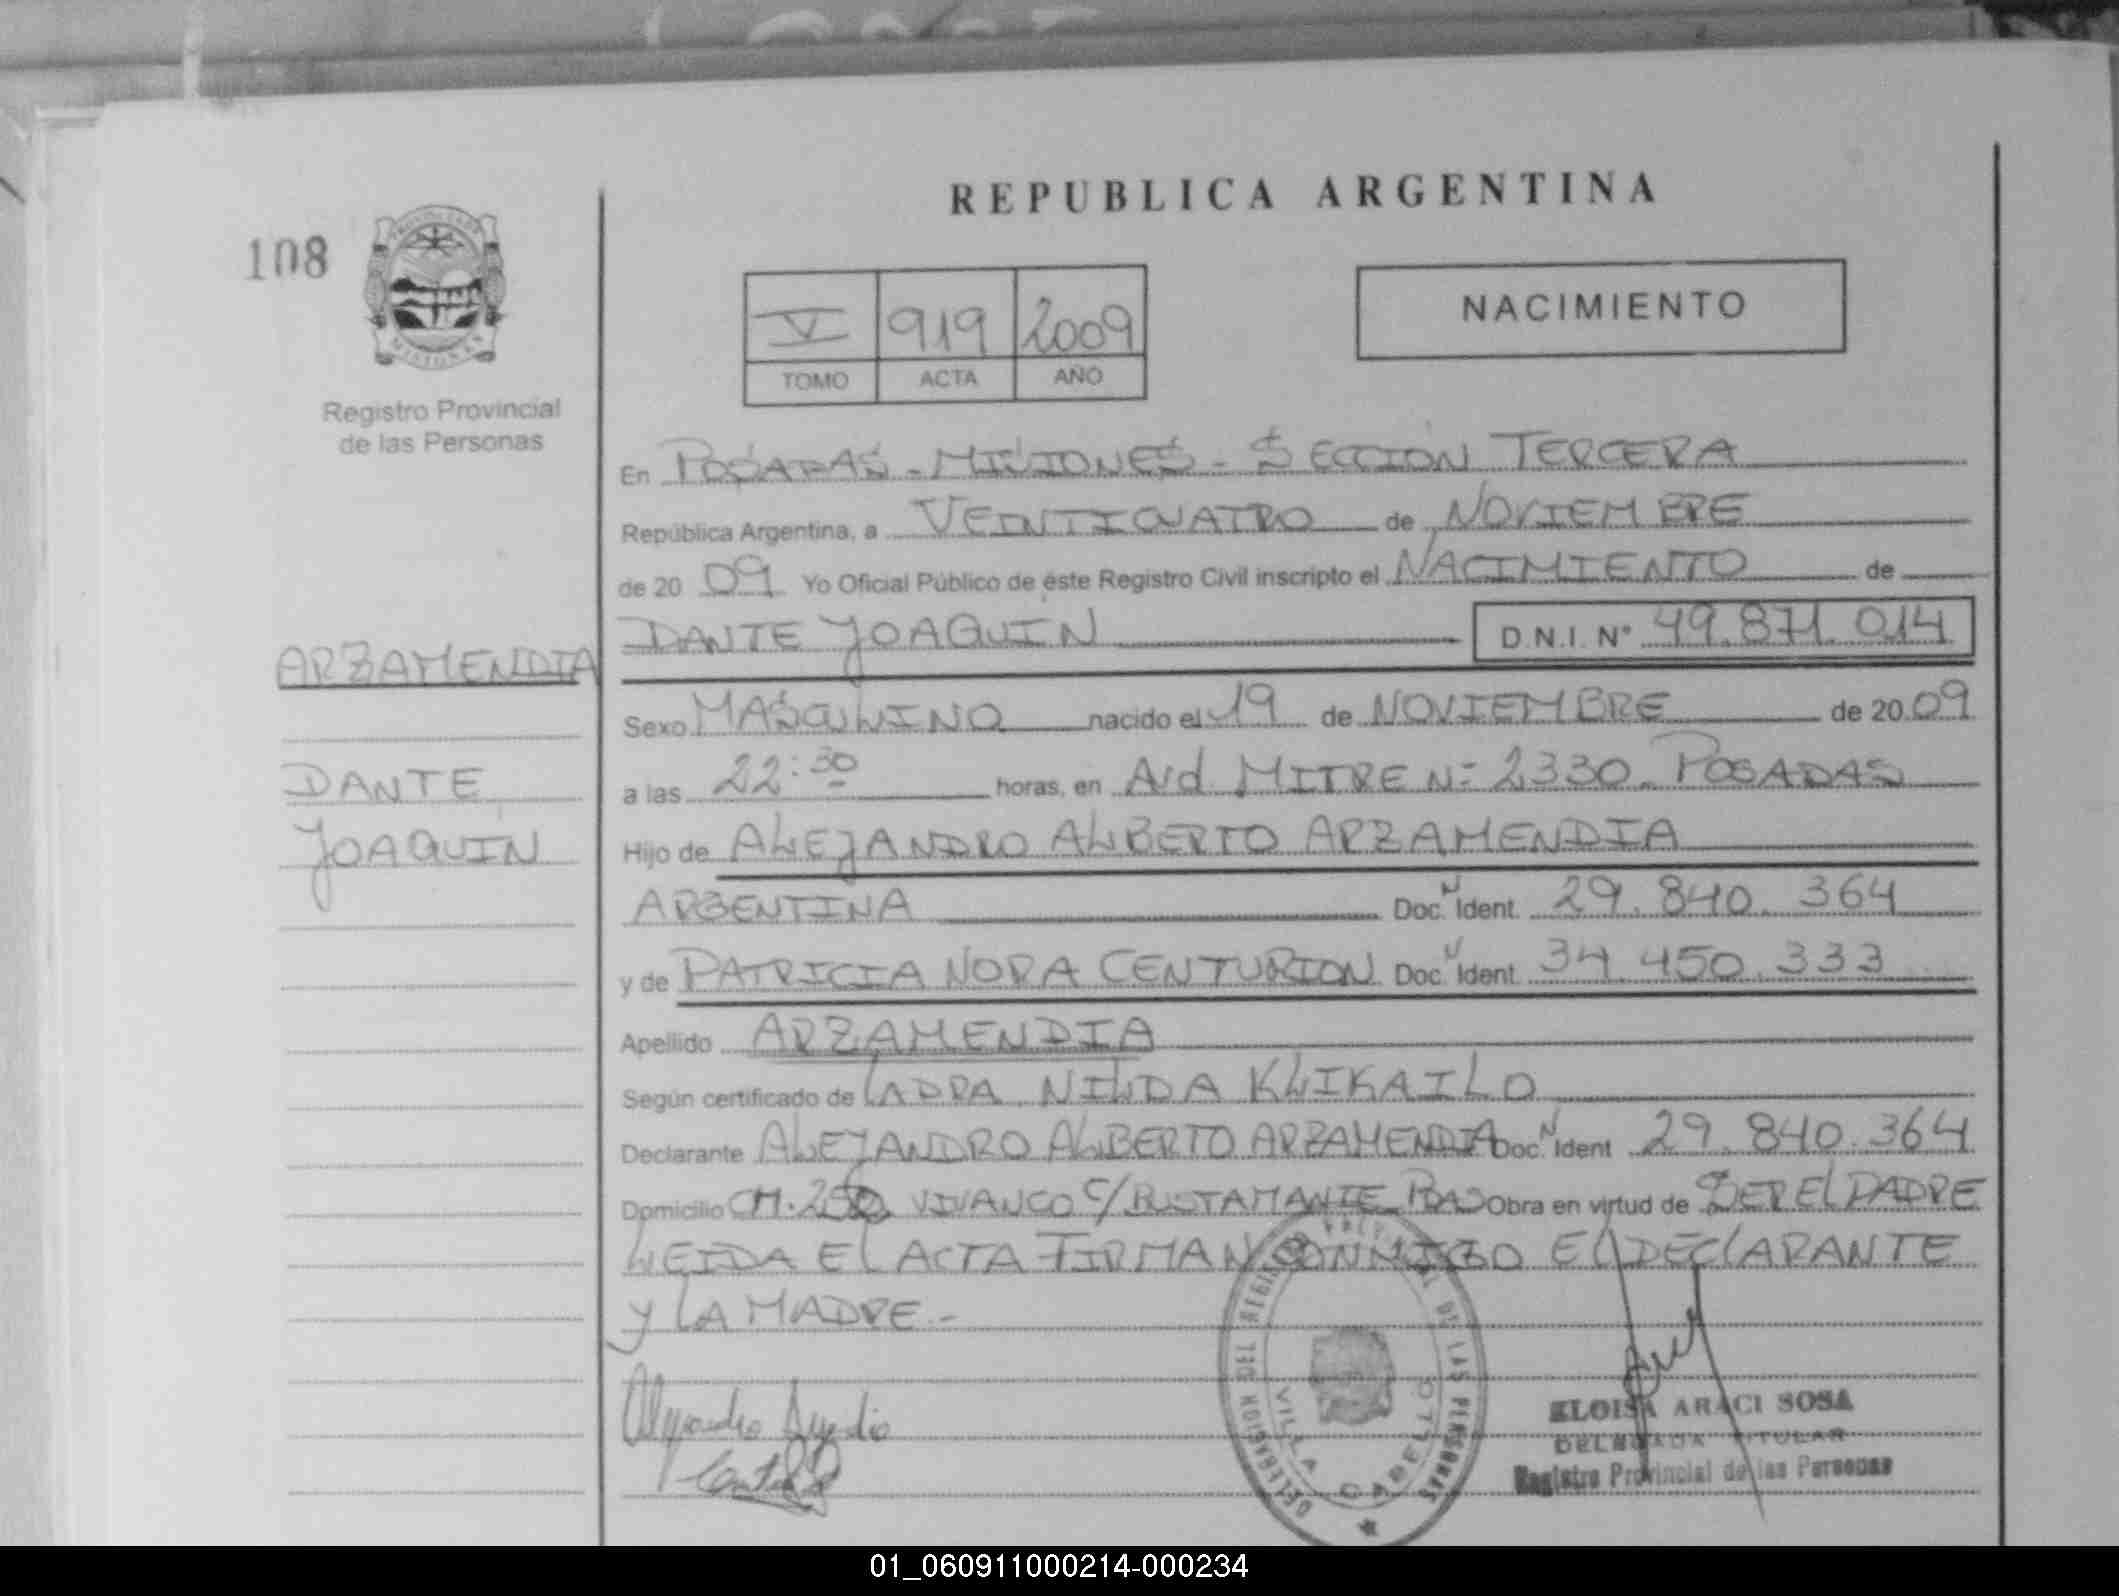 REPUBLICA ARGENTINA
108
PROVINCIA DE
MISIONES
Registro Provincial
de las Personas
V 919 2009
TOMO ACTA AÑO
NACIMIENTO
En POSADAS - MISIONES - SECCION TERCERA
República Argentina, a VEINTICUATRO de NOVIEMBRE
de 20 09 Yo Oficial Público de éste Registro Civil inscripto el NACIMIENTO de
DANTE JOAQUIN D.N.I. N° 49.871.014
ARZAMENDIA
DANTE
JOAQUIN
Sexo MASCULINO nacido el 19 de NOVIEMBRE de 20 09
a las 22:30 horas, en Avd. MITRE N= 2330. POSADAS
Hijo de ALEJANDRO ALBERTO ARZAMENDIA
ARGENTINA Doc. N Ident. 29.840.364
y de PATRICIA NORA CENTURION Doc. N Ident. 34.450.333
Apellido ARZAMENDIA
Según certificado de LA DRA. NILDA KLIKAILO
Declarante ALEJANDRO ALBERTO ARZAMENDIA Doc. N Ident 29.840.364
Domicilio CH. VIVANCO C/ BUSTAMANTE Obra en virtud de SER EL PADRE
LEIDA EL ACTA FIRMAN CONMIGO EL DECLARANTE
Y LA MADRE.-
DELEGACION DEL REGISTRO PROVINCIAL DE LAS PERSONAS
VILLA CABELLO
ELOISA ARACI SOSA
DELEGADA TITULAR
Registro Provincial de las Personas
01_060911000214-000234